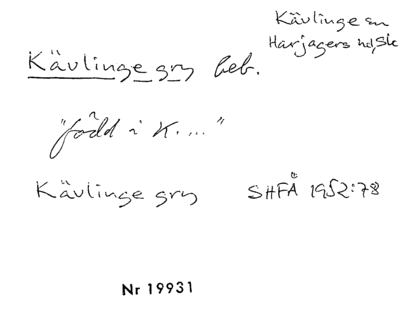 Kävlinge sn
Harjagers hd, Sk
Kävlinge gry beb.
"född i K. ..."
Kävlinge gry SHFÄ 1952:78
Nr 19931